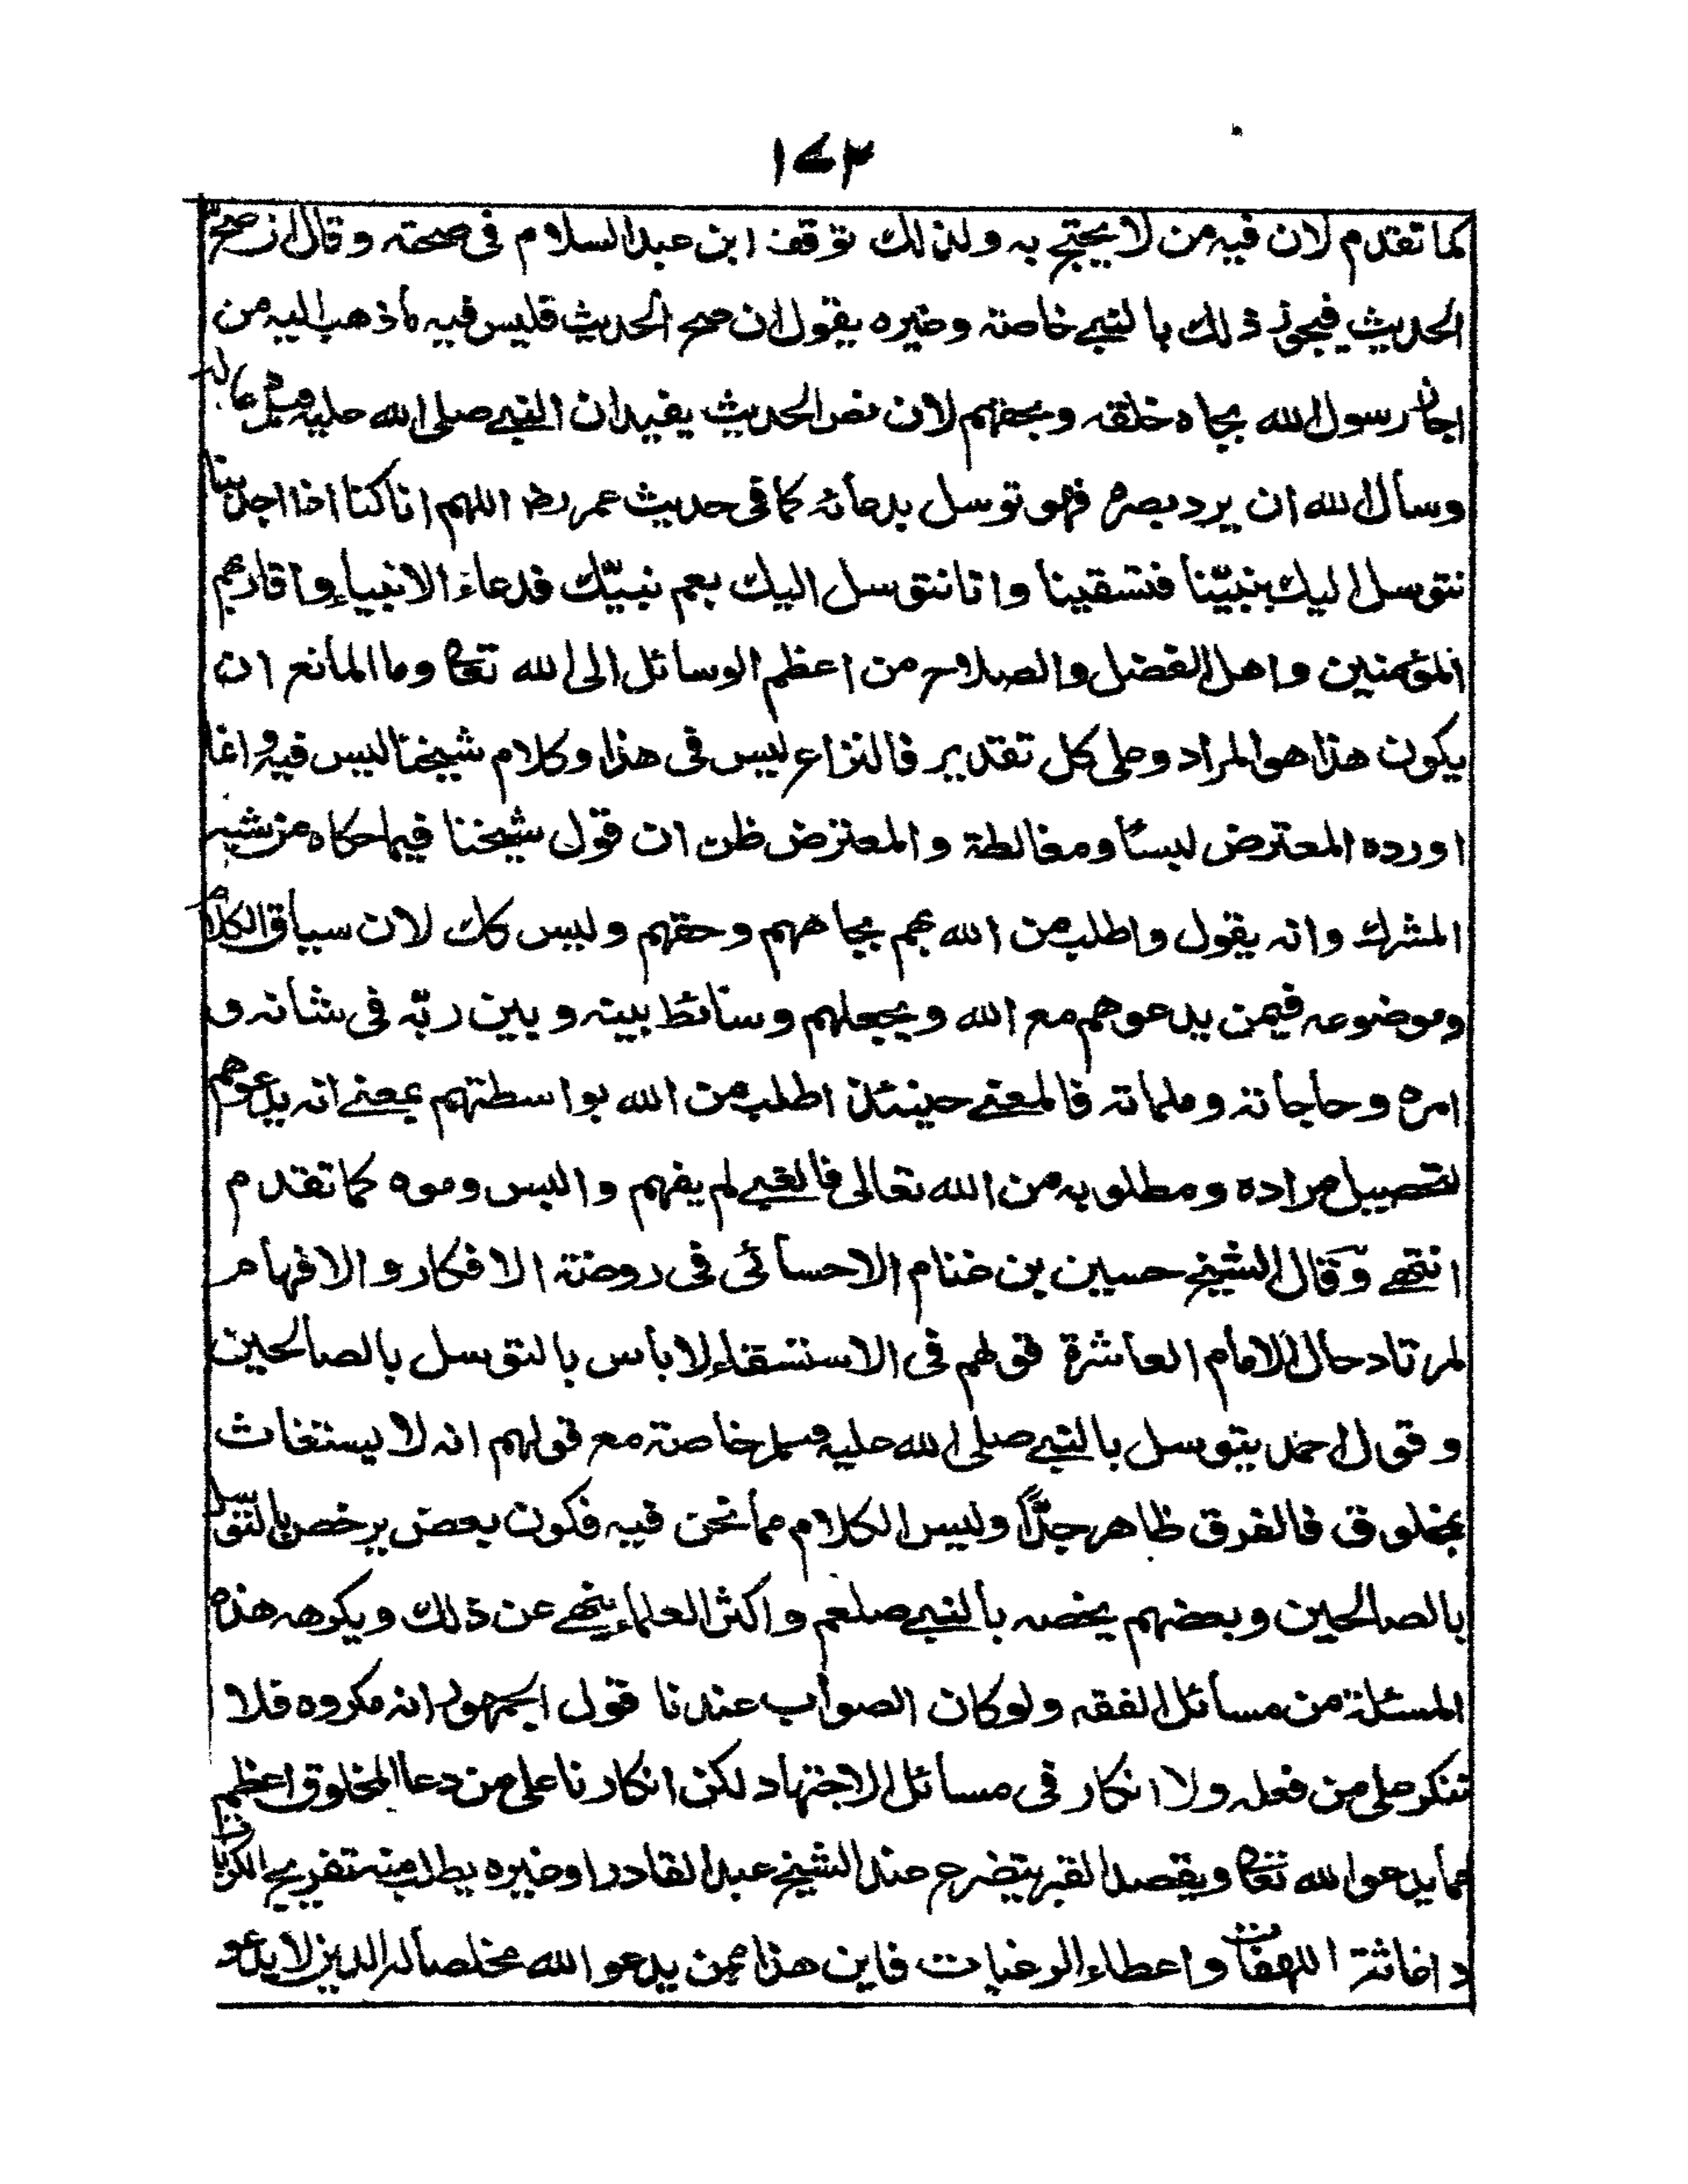 ١٧٣
كما تقدم لان فيه من لا يحتج به ولذلك توقف ابن عبد السلام فى صحته وقال ان صح
الحديث فيجوز ذلك بالنبى خاصة وغيره يقول ان صح الحديث فليس فيه ما ذهب اليه من
اجاز رسول الله بجاه خلقه وبحقهم لان نص الحديث يفيد ان النبى صلى الله عليه وسلم دعا له
وسأل الله ان يرد بصره فهو توسل بدعائه كما فى حديث عمر رض اللهم انا كنا اذا اجدبنا
نتوسل اليك بنبيّنا فتسقينا وانا نتوسل اليك بعم نبيّك فدعاء الانبياء واقاربهم
المؤمنين واهل الفضل والصلاح من اعظم الوسائل الى الله تعا وما المانع ان
يكون هذا هو المراد وعلى كل تقدير فالنزاع ليس فى هذا وكلام شيخنا ليس فيه وانما
اورده المعترض لبسًا ومغالطة والمعترض ظن ان قول شيخنا فيما حكاه عن
المشرك وانه يقول واطلب من الله بهم بجاههم وحقهم وليس كك لان سياق الكلام
وموضوعه فيمن يدعوهم مع الله ويجعلهم وسائط بينه وبين ربّه فى شانه و
امره وحاجاته وملماته فالمعنى حينئذ اطلب من الله بواسطتهم بمعنى انه يدعوهم
لتحصيل مراده ومطلوبه من الله تعالى فالغبى لم يفهم والبس وموه كما تقدم
انتهى وقال الشيخ حسين بن غنام الاحسائى فى روضة الافكار والافهام
لمرتاد حال الامام العاشرة قولهم فى الاستسقاء لا بأس بالتوسل بالصالحين
وقول احمد يتوسل بالنبى صلى الله عليه وسلم خاصة مع قولهم انه لا يستغاث
بمخلوق فالفرق ظاهر جدًّا وليس الكلام مما نحن فيه فكون بعض يرخص بالتوسل
بالصالحين وبعضهم يخصه بالنبى صلعم واكثر العلماء ينهى عن ذلك ويكرهه هذه
المسئلة من مسائل الفقه ولو كان الصواب عندنا قول الجمهور انه مكروه فلا
ننكر على من فعله ولا انكار فى مسائل الاجتهاد لكن انكارنا على من دعا المخلوق اعظم
مما يدعو الله تعا ويقصد القبر يتضرع عند الشيخ عبد القادر او غيره يطلب منه تفريج الكربات
واغاثة اللهفات واعطاء الرغبات فاين هذا ممن يدعو الله مخلصا له الدين لا يدعو